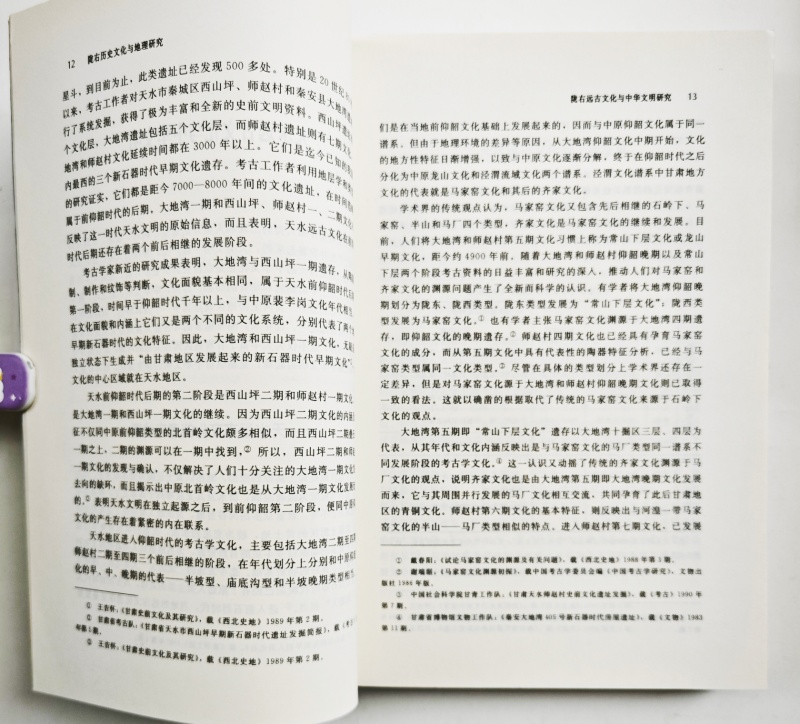 12 陇右历史文化与地理研究
星斗，到目前为止，此类遗址已经发现500多处。特别是20世纪
以来，考古工作者对天水市秦城区西山坪、师赵村和秦安县大地湾
行了系统发掘，获得了极为丰富和全新的史前文明资料。西山坪遗
个文化层，大地湾遗址包括五个文化层，而师赵村遗址则有七期文化
地湾和师赵村文化延续时间都在3000年以上。它们是迄今已知的
内最西的三个新石器时代早期文化遗存。考古工作者利用地层学和
的研究证实，它们都是距今7000—8000年间的文化遗址，在时间
属于前仰韶时代的后期。大地湾一期和西山坪、师赵村一、二期文
反映了这一时代天水文明的原始信息，而且表明，天水远古文化在
时代后期还存在着两个前后相继的发展阶段。
考古学家新近的研究成果表明，大地湾与西山坪一期遗存，从
制、制作和纹饰等判断，文化面貌基本相同，属于天水前仰韶时代
第一阶段，时间早于仰韶时代千年以上，与中原裴李岗文化年代相
在文化面貌和内涵上它们又是两个不同的文化系统，分别代表了两个
早期新石器时代的文化特征。因此，大地湾和西山坪一期文化，无
独立状态下生成并“由甘肃地区发展起来的新石器时代早期文化”
文化的中心区域就在天水地区。
天水前仰韶时代后期的第二阶段是西山坪二期和师赵村一期文
是大地湾一期和西山坪一期文化的继续。因为西山坪二期文化的内涵
征不仅同中原前仰韶类型的北首岭文化颇多相似，而且西山坪二期叠
一期之上，二期的渊源可以在一期中找到，②所以，西山坪二期和
一期文化的发现与确认，不仅解决了人们十分关注的大地湾一期文化
去向的缺环，而且揭示出中原北首岭文化也是从大地湾一期文化发展
的。③表明天水文明在独立起源之后，到前仰韶第二阶段，便同中原
文化的产生存在着紧密的内在联系。
天水地区进入仰韶文化时代的考古学文化，主要包括大地湾二期至四
师赵村二期至四期三个前后相继的阶段，在年代划分上分别和中原
化的早、中、晚期的代表——半坡型、庙底沟型和半坡晚期类型相
① 王吉怀：《甘肃史前文化及其研究》，载《西北史地》1989年第2期。
② 甘肃省考古队：《甘肃省天水市西山坪早期新石器时代遗址发掘简报》，载《考
③ 王吉怀：《甘肃史前文化及其研究》，载《西北史地》1989年第2期。
陇右远古文化与中华文明研究 13
们是在当地前仰韶文化基础上发展起来的，因而与中原仰韶文化属于同一
谱系。但由于地理环境的差异等原因，从大地湾仰韶文化中期开始，文化
的地方性特征日渐增强，以致与中原文化逐渐分解，终于在仰韶时代之后
分化为中原龙山文化和泾渭流域文化两个谱系。泾渭文化谱系中甘肃地方
文化的代表就是马家窑文化和其后的齐家文化。
学术界的传统观点认为，马家窑文化又包含先后相继的石岭下、马
家窑、半山和马厂四个类型，齐家文化是马家窑文化的继续和发展。目
前，人们将大地湾和师赵村第五期文化习惯上称为常山下层文化或龙山
早期文化，距今约4900年前。随着大地湾和师赵村仰韶晚期以及常山
下层两个阶段考古资料的日益丰富和研究的深入，推动人们对马家窑和
齐家文化的渊源问题产生了全新而科学的认识。有学者将大地湾仰韶晚
期划分为陇东、陇西类型。陇东类型发展为“常山下层文化”；陇西类
型发展为马家窑文化。①也有学者主张马家窑文化渊源于大地湾四期遗
存，即仰韶文化的晚期遗存。师赵村四期文化也已经具有孕育马家窑
文化的成分，而从第五期文化中具有代表性的陶器特征分析，已经与马
家窑类型属同一文化类型。③尽管在具体的类型划分上学术界还存在一
定差异，但是对马家窑文化源于大地湾和师赵村仰韶晚期文化则已取得
一致的看法。这就以确凿的根据取代了传统的马家窑文化来源于石岭下
文化的观点。
大地湾第五期即“常山下层文化”遗存以大地湾十掘区三层、四层为
代表，从其年代和文化内涵反映出是与马家窑文化的马厂类型同一谱系不
同发展阶段的考古学文化。④这一认识又动摇了传统的齐家文化渊源于马
厂文化的观点，说明齐家文化也是由大地湾第五期即大地湾晚期文化发展
而来，它与其周围并行发展的马厂文化相互交流，共同孕育了此后甘肃地
区的青铜文化。师赵村第六期文化的基本特征，则反映出与河湟一带马家
窑文化的半山——马厂类型相似的特点。进入师赵村第七期文化，已发展
① 戴春阳：《试论马家窑文化的渊源及有关问题》，载《西北史地》1988年第1期。
② 谢端琚：《马家窑文化渊源初探》，载中国考古学委员会编《中国考古学研究》，文物出
版社1986年版。
③ 中国社会科学院甘青工作队：《甘肃天水师赵村史前文化遗址发掘》，载《考古》1990年
第7期。
④ 甘肃省博物馆文物工作队：《秦安大地湾405号新石器时代房屋遗址》，载《文物》1983
第11期。